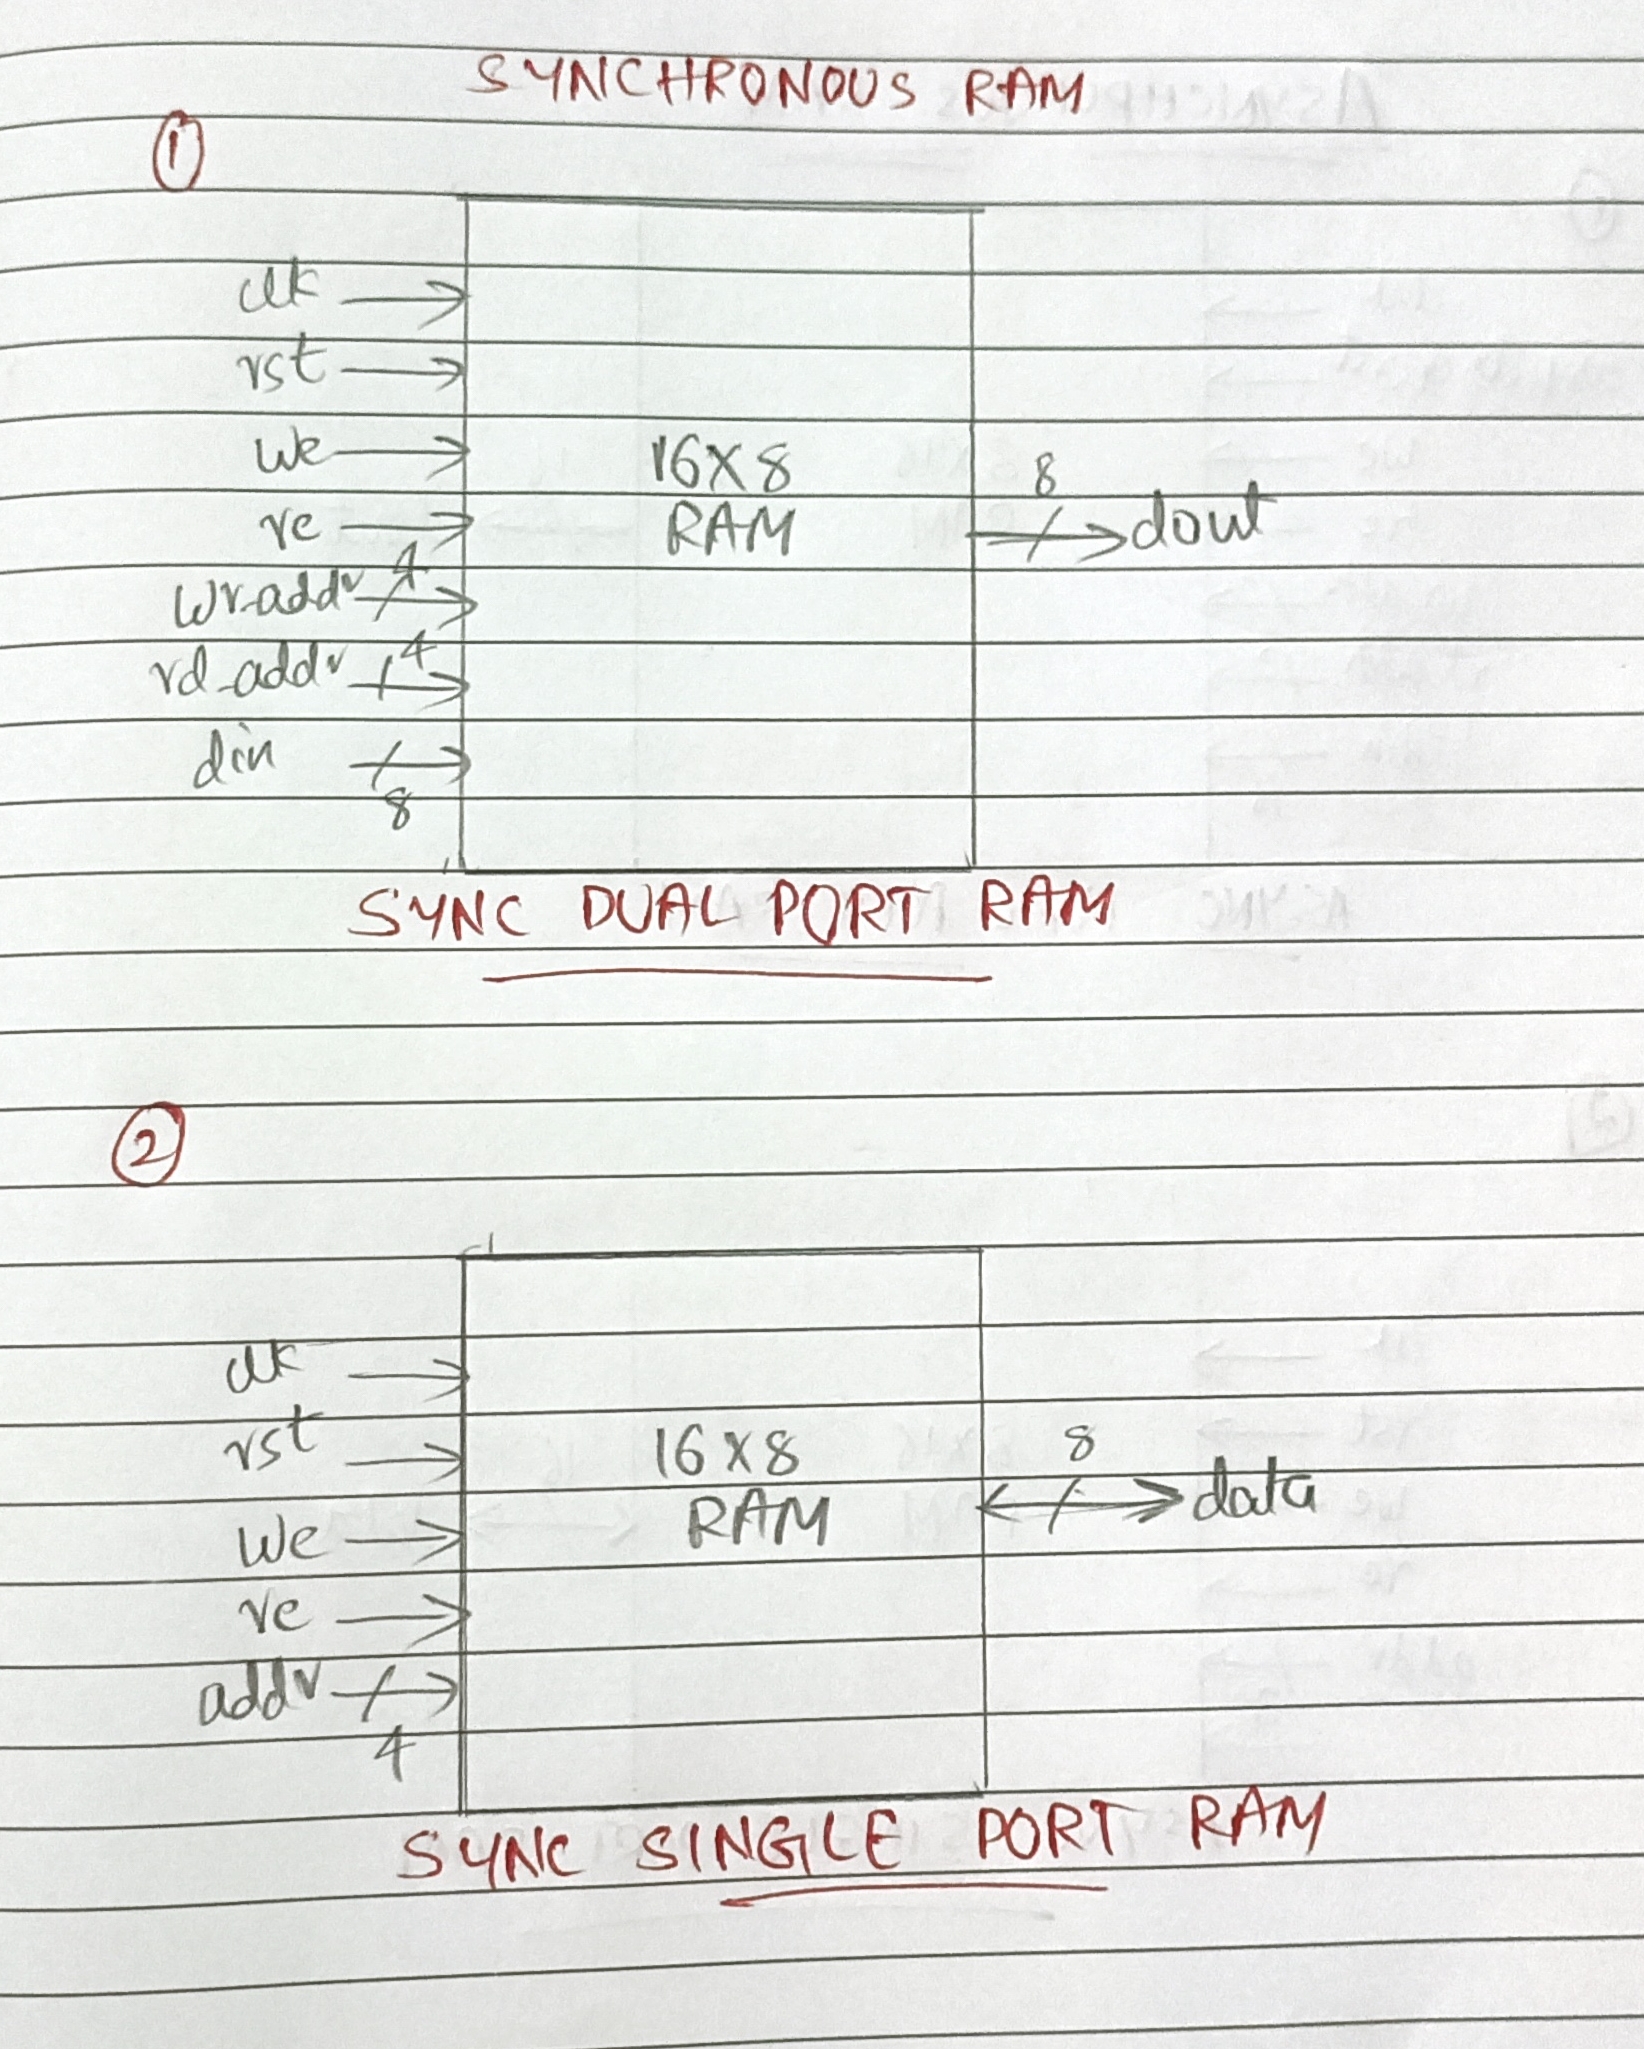 SYNCHRONOUS RAM
①
clk
rst
we
re
wr_addr 4
rd_addr 4
din 8
16X8
RAM
8
dout
SYNC DUAL PORT RAM
②
clk
rst
we
re
addr
4
16X8
RAM
8
data
SYNC SINGLE PORT RAM